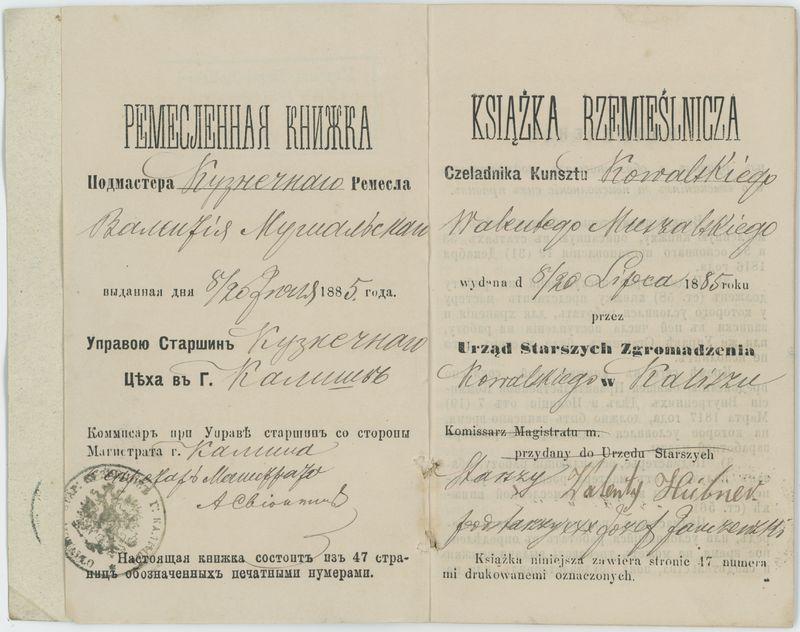 РЕМЕСЛЕННАЯ КНИЖКА
Подмастера Кузнечнаго Ремесла
Валентія
выданная дня 8/20 1885. года.
Управою Старшинъ Кузнечнаго
Цѣха въ Г. Калишѣ
Коммисаръ при Управѣ старшинъ со стороны
Магистрата г. Калиша
Магистрата
Настоящая книжка состоитъ изъ 47 стра-
ницъ обозначенныхъ печатными нумерами.
KSIĄŻKA RZEMIEŚLNICZA
Czeladnika Kunsztu Kowalskiego
Walentego
wydana d 8/20 Lipca 1885 roku
przez
Urząd Starszych Zgromadzenia
Kowalskiego w Kaliszu
Komissarz Magistratu m.
przydany do Urzędu Starszych
Starszy Walenty Hübner
Józef
Książka niniejsza zawiera stronic 47 numera
mi drukowanemi oznaczonych.